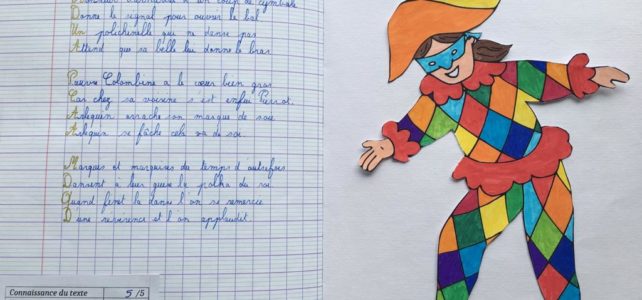 Monsieur Carnaval a un coup de cymbale
Donne le signal pour ouvrir le bal
Un polichinelle qui ne danse pas
Attend que sa belle lui donne le bras
Pauvre Colombine a le cœur bien gros
Car chez sa voisine s est enfui Pierrot.
Arlequin arrache son masque de soie
Arlequin se fâche cela va de soi
Marquis et marquises du temps d autrefois
Dansent à leur guise la polka du roi
Quand finit la danse l on se remercie
D une révérence et l on applaudit
Connaissance du texte 5 /5